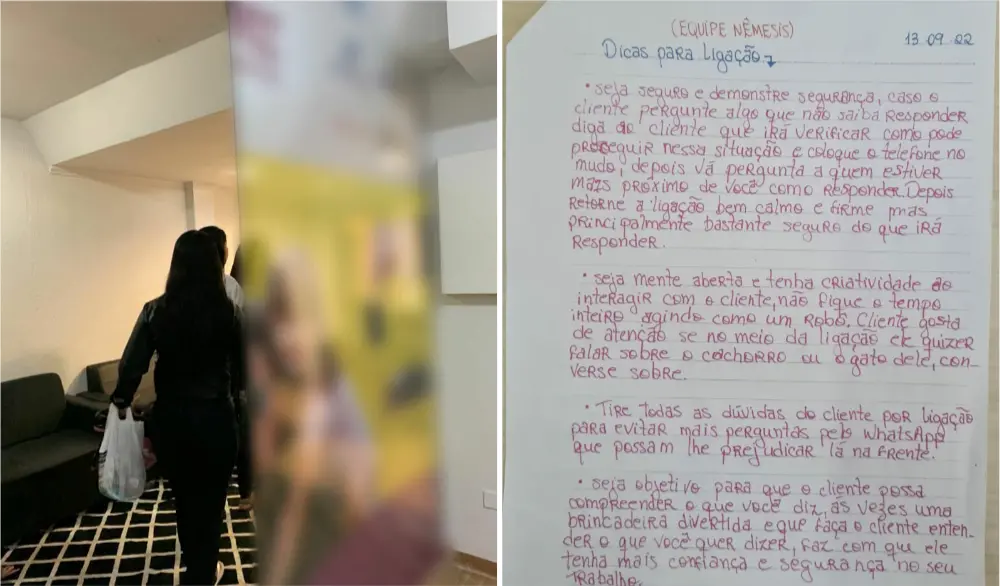 (EQUIPE NÊMESIS)
13 09 22
Dicas para Ligação
• seja seguro e demonstre segurança, caso o
cliente pergunte algo que não saiba Responder
diga ao cliente que irá verificar como pode
prosseguir nessa situação e coloque o telefone no
mudo, depois vá pergunta a quem estiver
mais próximo de você como responder. Depois
Retorne a ligação bem calmo e firme mas
principalmente bastante seguro do que irá
Responder.
• seja mente aberta e tenha criatividade ao
interagir com o cliente, não fique o tempo
inteiro agindo como um Robô. Cliente gosta
de atenção se no meio da ligação ele quizer
falar sobre o cachorro ou o gato dele, con-
verse sobre.
• Tire todas as dúvidas do cliente por ligação
para evitar mais perguntas pelo WhatsApp
que possam lhe prejudicar lá na frente.
• seja objetivo para que o cliente possa
compreender o que você diz, ás vezes uma
brincadeira divertida e que faça o cliente enten-
der o que você quer dizer, faz com que ele
tenha mais confiança e segurança no seu
Trabalho.